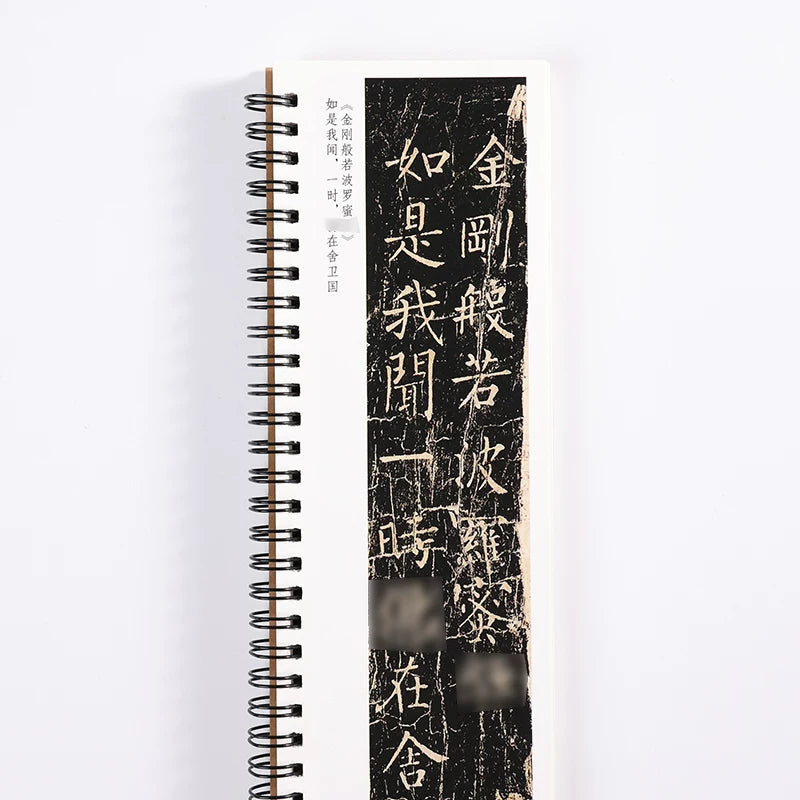 金剛般若波羅蜜
如是我聞一時
在舍
《金刚般若波罗蜜
》
如是我闻，一时，
在舍卫国